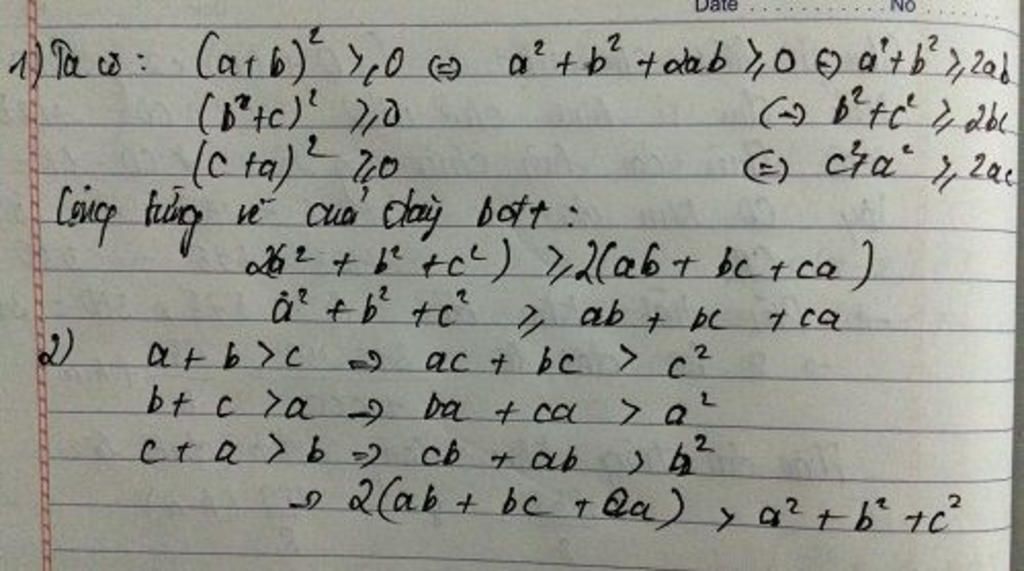 Date ........... No .......
1) Ta có : (a+b)² ≥ 0 ⇔ a² + b² + 2ab ≥ 0 ⇔ a² + b² ≥ 2ab
(b²+c)² ≥ 0 ⇔ b² + c² ≥ 2bc
(c+a)² ≥ 0 ⇔ c² + a² ≥ 2ac
Công từng vế của dãy bđt :
2(a² + b² + c²) ≥ 2(ab + bc + ca)
a² + b² + c² ≥ ab + bc + ca
2) a + b > c ⇒ ac + bc > c²
b + c > a ⇒ ba + ca > a²
c + a > b ⇒ cb + ab > b²
⇒ 2(ab + bc + ca) > a² + b² + c²